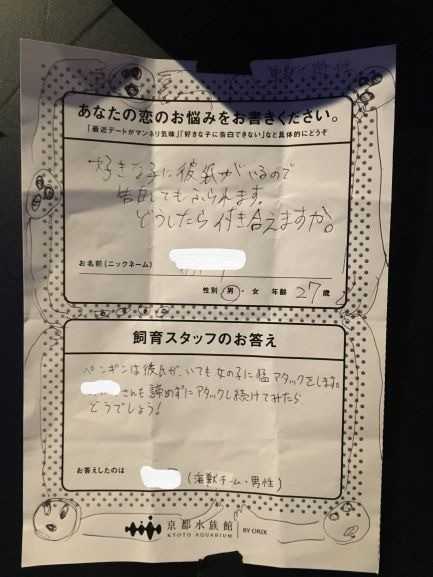 あなたの恋のお悩みをお書きください。
「最近デートがマンネリ気味」「好きな子に告白できない」など具体的にどうぞ
好きな子に彼氏がいるので
告白してもふられます。
どうしたら付き合えますか。
お名前(ニックネーム)
性別 男・女 年齢 27歳
飼育スタッフのお答え
ペンギンは彼氏が、いても女の子に猛アタックをします。
さんも諦めずにアタックし続けてみたら
どうでしょう!
お答えしたのは (海獣チーム・男性)
京都水族館 BY ORIX
KYOTO AQUARIUM